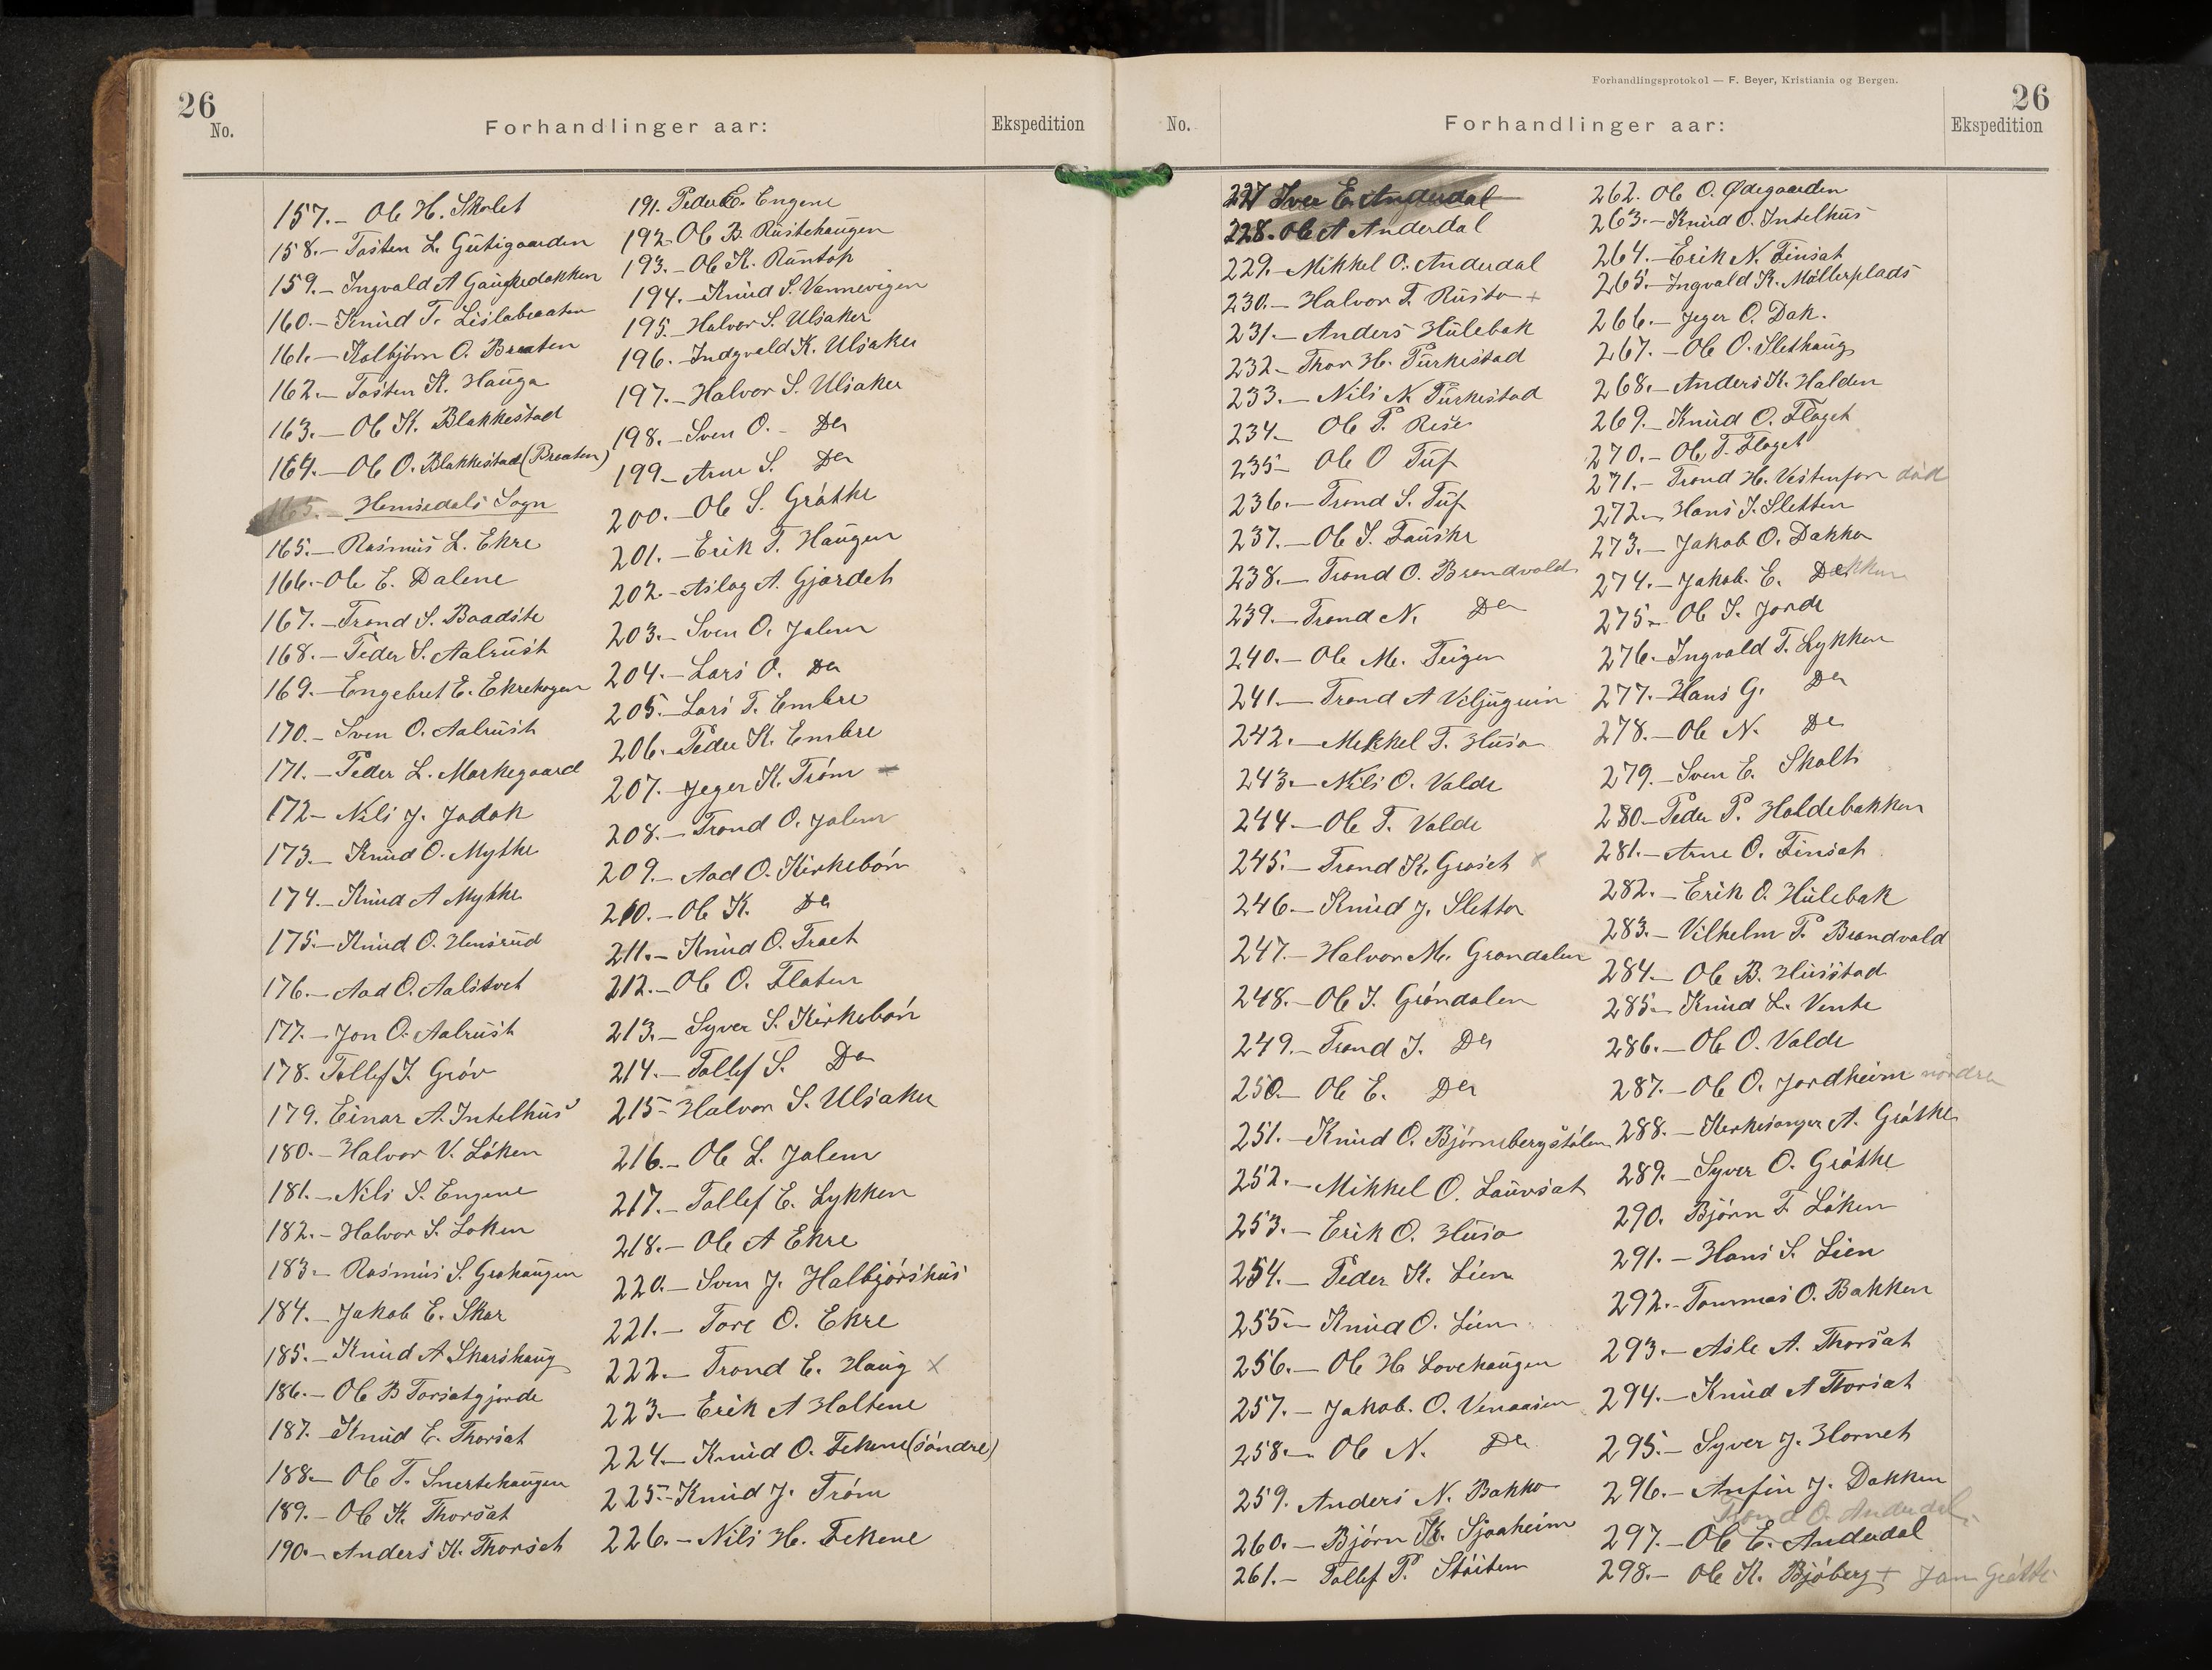 26
No.
Forhandlinger aar:
Ekspedition
157.- Ole H. Skolet
158.- Tosten L. Gutigaarden
159.- Ingvald A
160.- Knud T. Lislabraaten
161.- Kolbjørn O. Braaten
162.- Tosten K. Hauga
163.- Ole K. Blakkestad
164.- Ole O. Blakkestad (Braaten)
165.- Hemsedals Sogn
165.- Rasmus L. Ekre
166.- Ole E. Dalene
167.- Trond S. Baadste
168.- Peder S. Aalrust
169.- Engebret E. Ekrehagen
170.- Sven O. Aalrust
171.- Peder L. Markegaard
172.- Nils J. Jadak
173.- Knud O. Mythe
174.- Knud A Mykke
175.- Knud O. Hensrud
176.- Aad O. Aalstvet
177.- Jon O. Aalrust
178. Tollef T. Grøv
179. Einar A. Intelhus
180.- Halvor V. Løken
181.- Nils S. Engene
182.- Halvor S. Loken
183.- Rasmus S. Grohaugen
184.- Jakob E. Skar
185.- Knud A Skarshaug
186.- Ole B Torsetgjorde
187.- Knud E. Thorset
188.- Ole T. Snertehaugen
189.- Ole K. Thorset
190.- Anders K. Thorset
191. Peder E. Engene
192.- Ole B. Rustehaugen
193.- Ole K. Runtop
194.- Knud S. Vannevigen
195.- Halvor S. Ulsaker
196.- Indgvald K. Ulsaker
197.- Halvor S. Ulsaker
198.- Sven O. - Do
199.- Arne S. Do
200.- Ole S. Grøthe
201.- Erik T. Haugen
202.- Aslag A. Gjordet
203.- Sven O. Jalem
204.- Lars O. Do
205.- Lars T. Embre
206.- Peder K. Embre
207.- Jeger K. Trøm
208.- Trond O. Jalem
209.- Aad O. Kirkebøn
210.- Ole K. Do
211.- Knud O. Traet
212.- Ole O. Flaten
213.- Syver S. Kirkebøn
214.- Tollef S. Do
215.- Halvor S. Ulsaker
216.- Ole L. Jalem
217.- Tollef E. Lykken
218.- Ole A Ekre
220.- Sven J. Halbjørshus
221.- Tore O. Ekre
222.- Trond E. Haug x
223.- Erik A Holtene
224.- Knud O. Fekene (søndre)
225.- Knud J. Trøm
226.- Nils H. Fekene
Forhandlingsprotokol — F. Beyer, Kristiania og Bergen.
26
No.
Forhandlinger aar:
Ekspedition
227 Iver E. Anderdal
228. Ole A Anderdal
229.- Mikkel O. Anderdal
230.- Halvor T. Rusto +
231.- Anders Hulebak
232.- Thor H. Turkestad
233.- Nils N. Turkestad
234.- Ole P.
235- Ole O Tuf
236.- Trond S. Tuf
237.- Ole S. Fauske
238.- Trond O. Brandvold
239.- Trond N. Do
240.- Ole M. Teigen
241.- Trond A
242.- Mekkel T. Huso
243.- Nils O. Valde
244.- Ole T. Valde
245.- Trond K. Groset x
246.- Knud J. Sletto
247.- Halvor M. Grøndalen
248.- Ole T. Grøndalen
249.- Trond T. Do
250.- Ole E. Do
251.- Knud O. Bjørnebergstølen
252.- Mikkel O. Laurset
253.- Erik O. Huso
254.- Peder K. Lien
255.- Knud O. Lien
256.- Ole H Lovehaugen
257.- Jakob. O. Venaasen
258.- Ole N. Do
259. Anders N. Bakko
260.- Bjørn K. Sjaaheim
261.- Tollef P. Støiten
262. Ole O. Ødegaarden
263.- Knud O. Intelhus
264.- Erik N. Finset
265.- Ingvald K. Møllerplads
266.- Jeger O. Dak.
267.- Ole O. Slethaug
268.- Anders K. Halden
269.- Knud O. Flaget
270.- Ole T. Flaget
271.- Trond H. Vestenfor død
272.- Hans T. Sletten
273.- Jakob O. Dakken
274.- Jakob. E. Dokken
275.- Ole S. Jorde
276.- Ingvald T. Lykken
277.- Hans G. Do
278.- Ole N. Do
279.- Sven E. Skolt
280.- Peder P. Holdebakken
281.- Arne O. Finset
282.- Erik O. Hulebak
283.- Vilhelm P. Brandvold
284.- Ole B. Husstad
285.- Knud L. Vente
286.- Ole O. Valde
287.- Ole O. Jordheim nordre
288.- Kerkesanger A. Grøthe
289.- Syver O. Grøthe
290. Bjørn T. Løken
291.- Hans S. Lien
292.- Tommas O. Bakken
293.- Asle A. Thorset
294.- Knud A Thorset
295.- Syver J. Hornet
296.- Anfin J. Dokken
Trond O. Anderdal
297.- Ole E. Anderdal
298.- Ole K. Bjøberg + Jam Grøthe